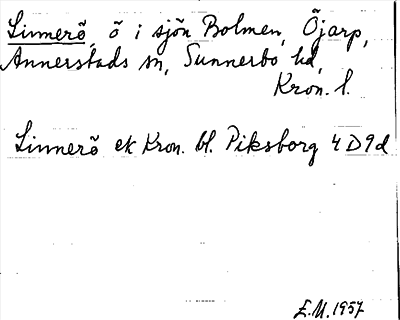 Linnerö, ö i sjön Bolmen, Öjarp,
Annerstads sn, Sunnerbo hd,
Kron. l.
Linnerö ek Kron. bl. Piksborg 4 D 9 d
E.M. 1957